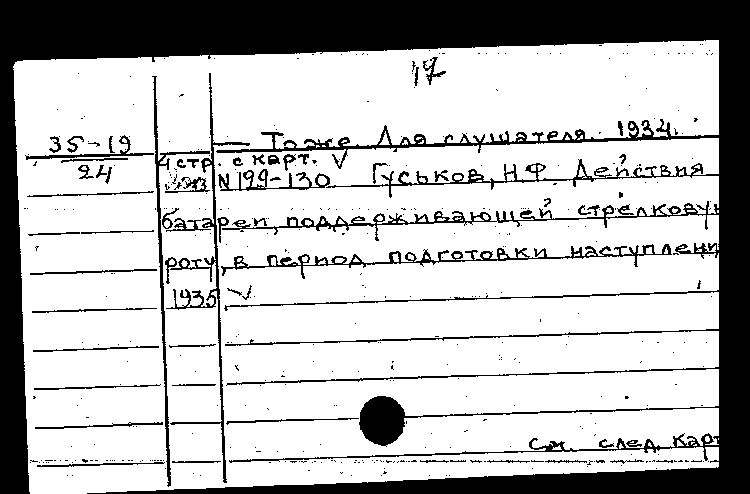 17
35-19
24
— То же. Для слушателя. 1934.
4 стр. с карт. V
N 129-130 Гуськов, Н.Ф. Действия
батареи, поддерживающей стрелковую
роту, в период подготовки наступлени
1935 V
См. след. карт